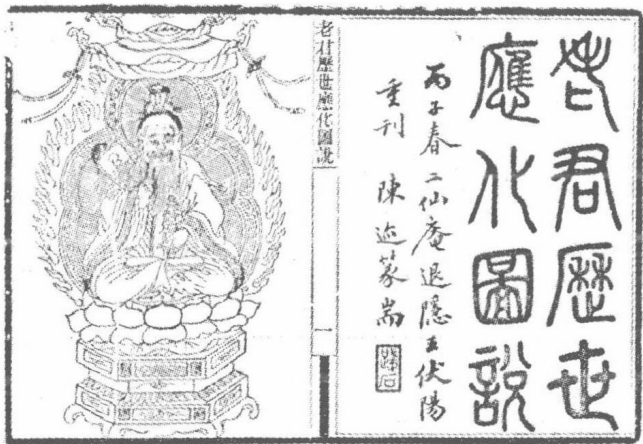 老君歷世
應化圖說
丙子春二仙庵退隱王伏陽
重刊 陳迹篆耑
老君歷世應化圖說
一